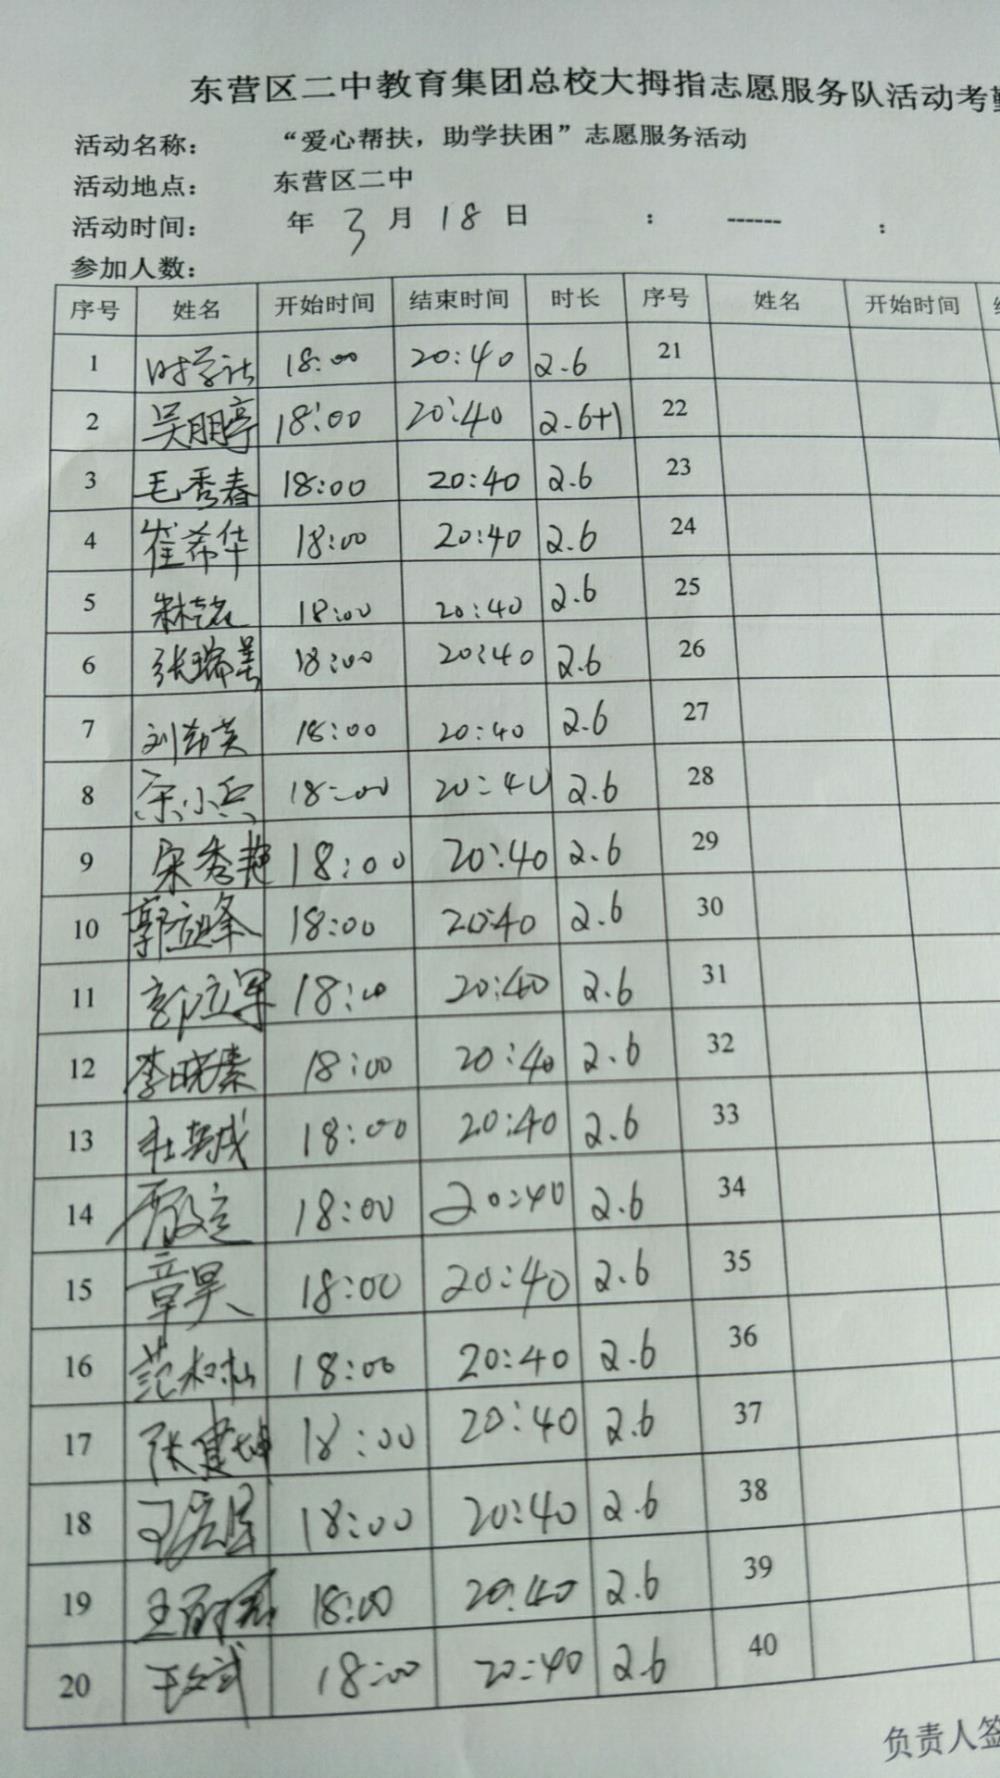 东营区二中教育集团总校大拇指志愿服务队活动考勤
活动名称： “爱心帮扶，助学扶困”志愿服务活动
活动地点： 东营区二中
活动时间： 年 3 月 18 日 ： ------ ：
参加人数：
序号 姓名 开始时间 结束时间 时长 序号 姓名 开始时间
1 18:00 20:40 2.6 21
2 吴朋亭 18:00 20:40 2.6+1 22
3 毛秀春 18:00 20:40 2.6 23
4 崔希华 18:00 20:40 2.6 24
5 18:00 20:40 2.6 25
6 张瑞 18:00 20:40 2.6 26
7 刘 英 18:00 20:40 2.6 27
8 小兵 18:00 20:40 2.6 28
9 宋秀艳 18:00 20:40 2.6 29
10 郭 峰 18:00 20:40 2.6 30
11 立军 18:00 20:40 2.6 31
12 李晓 18:00 20:40 2.6 32
13 杜 成 18:00 20:40 2.6 33
14 18:00 20:40 2.6 34
15 章昊 18:00 20:40 2.6 35
16 范 18:00 20:40 2.6 36
17 张建坤 18:00 20:40 2.6 37
18 王 18:00 20:40 2.6 38
19 王 18:00 20:40 2.6 39
20 王 武 18:00 20:40 2.6 40
负责人签